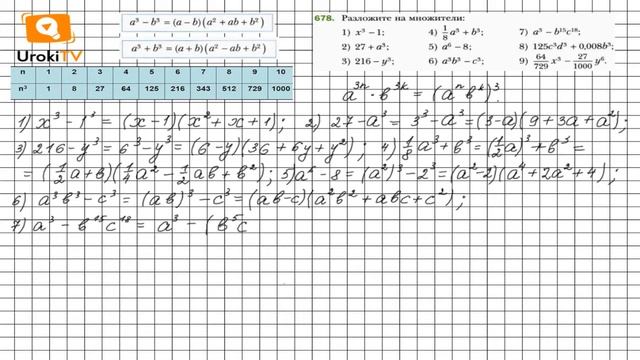 UrokiTV
a³ − b³ = (a − b)(a² + ab + b²)
a³ + b³ = (a + b)(a² − ab + b²)
n 1 2 3 4 5 6 7 8 9 10
n³ 1 8 27 64 125 216 343 512 729 1000
678. Разложите на множители:
1) x³ − 1; 4) 1/8 a³ + b³; 7) a³ − b¹⁵c¹⁸;
2) 27 + a³; 5) a⁶ − 8; 8) 125c³d³ + 0,008b³;
3) 216 − y³; 6) a³b³ − c³; 9) 64/729 x³ − 27/1000 y⁶.
a³ⁿ · b³ᵏ = (aⁿ bᵏ)³.
1) x³ − 1³ = (x − 1)(x² + x + 1); 2) 27 − a³ = 3³ − a³ = (3 − a)(9 + 3a + a²);
3) 216 − y³ = 6³ − y³ = (6 − y)(36 + 6y + y²); 4) 1/8 a³ + b³ = (1/2 a)³ + b³ =
= (1/2 a + b)(1/4 a² − 1/2 ab + b²); 5) a⁶ − 8 = (a²)³ − 2³ = (a² − 2)(a⁴ + 2a² + 4);
6) a³b³ − c³ = (ab)³ − c³ = (ab − c)(a²b² + abc + c²);
7) a³ − b¹⁵c¹⁸ = a³ − (b⁵c